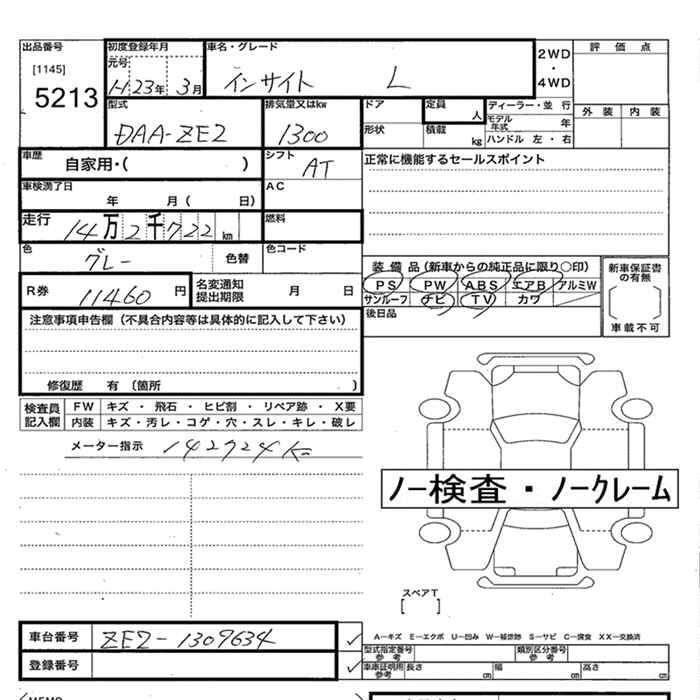 出品番号
[1145]
5213
初度登録年月
元号
H 23年 3月
車名・グレード
インサイト L
2WD
・
4WD
評価点
外装 内装
型式
DAA-ZE2
排気量又はkw
1300
ドア
形状
定員
人
積載
kg
ディーラー・並行
モデル年式 年
ハンドル 左・右
車歴
自家用・( )
シフト
AT
正常に機能するセールスポイント
車検満了日
年 月 ( 日)
AC
走行
14万2千722km
燃料
色
グレー
色替
色コード
R券
11460円
名変通知
提出期限
月 日
装備品(新車からの純正品に限り○印)
PS PW ABS エアB アルミW
サンルーフ ナビ TV カワ
後日品
新車保証書
の有無
[ ]
車載不可
注意事項申告欄(不具合内容等は具体的に記入して下さい)
修復歴 有 〔箇所 〕
検査員
記入欄
FW キズ・飛石・ヒビ割・リペア跡・X要
内装 キズ・汚レ・コゲ・穴・スレ・キレ・破レ
メーター指示
ノー検査・ノークレーム
スペアT
[ ]
車台番号 ZE2-1309634
登録番号
A-キズ E-エクボ U-凹み W-補修跡 S-サビ C-腐食 XX-交換済
型式指定番号
参考
類別区分番号
参考
車車証明用
参考
長さ cm 幅 cm 高さ cm
MEMO